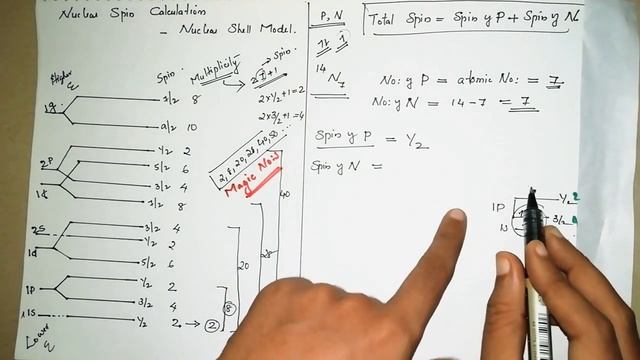 Nuclear Spin Calculation
- Nuclear Shell Model.
Higher
E
Spin
Multiplicity
→ Spin
2I+1
2x1/2+1=2
2x3/2+1=4
1g
7/2 8
9/2 10
2P
1/2 2
5/2 6
3/2 4
1f
7/2 8
2S
3/2 4
1/2 2
1d
5/2 6
1P
1/2 2
3/2 4
1S
1/2 2 → 2
Lower
E
2, 8, 20, 28, 40, 50
Magic No:s
8
20
28
40
P, N
1↑ 1
14
N7
Total Spin = Spin of P + Spin of N
No: of P = atomic No: = 7
No: of N = 14-7 = 7
Spin of P = 1/2
Spin of N =
1P
1/2 2
3/2 4
1S